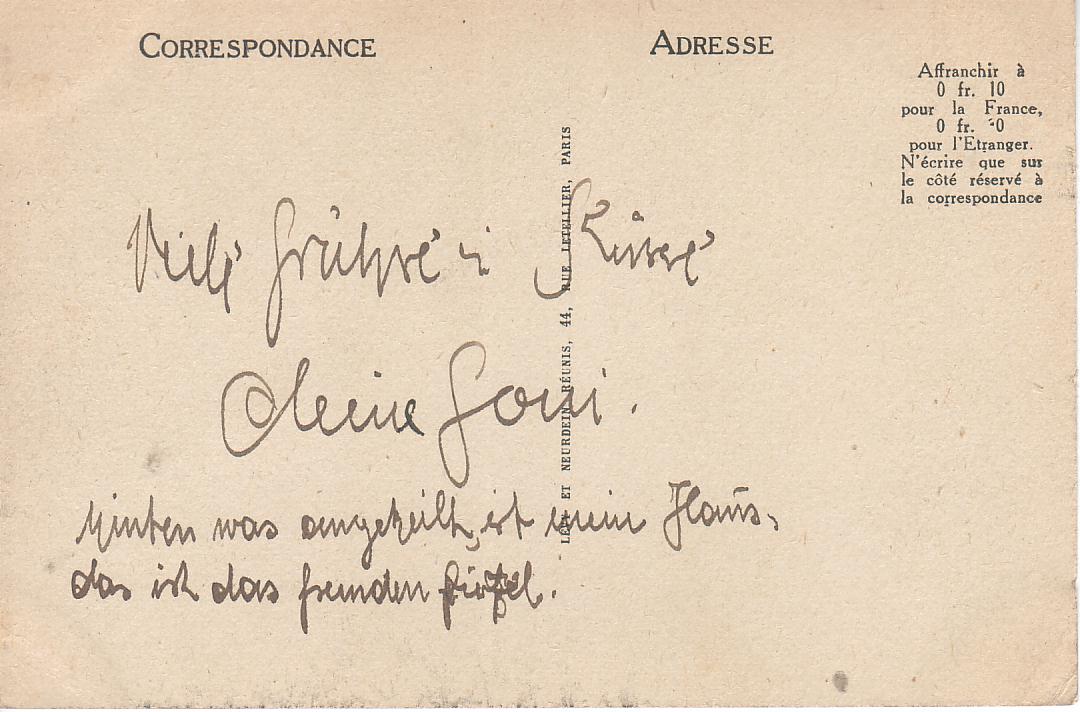 CORRESPONDANCE
ADRESSE
Affranchir à
0 fr. 10
pour la France,
0 fr. 20
pour l'Etranger.
N'écrire que sur
le côté réservé à
la correspondance
LÉVY ET NEURDEIN RÉUNIS, 44, RUE LETELLIER, PARIS
Viele Grüße u Küsse
Deine
hinten was angekeilt, ist mein Haus,
das ist das fremden